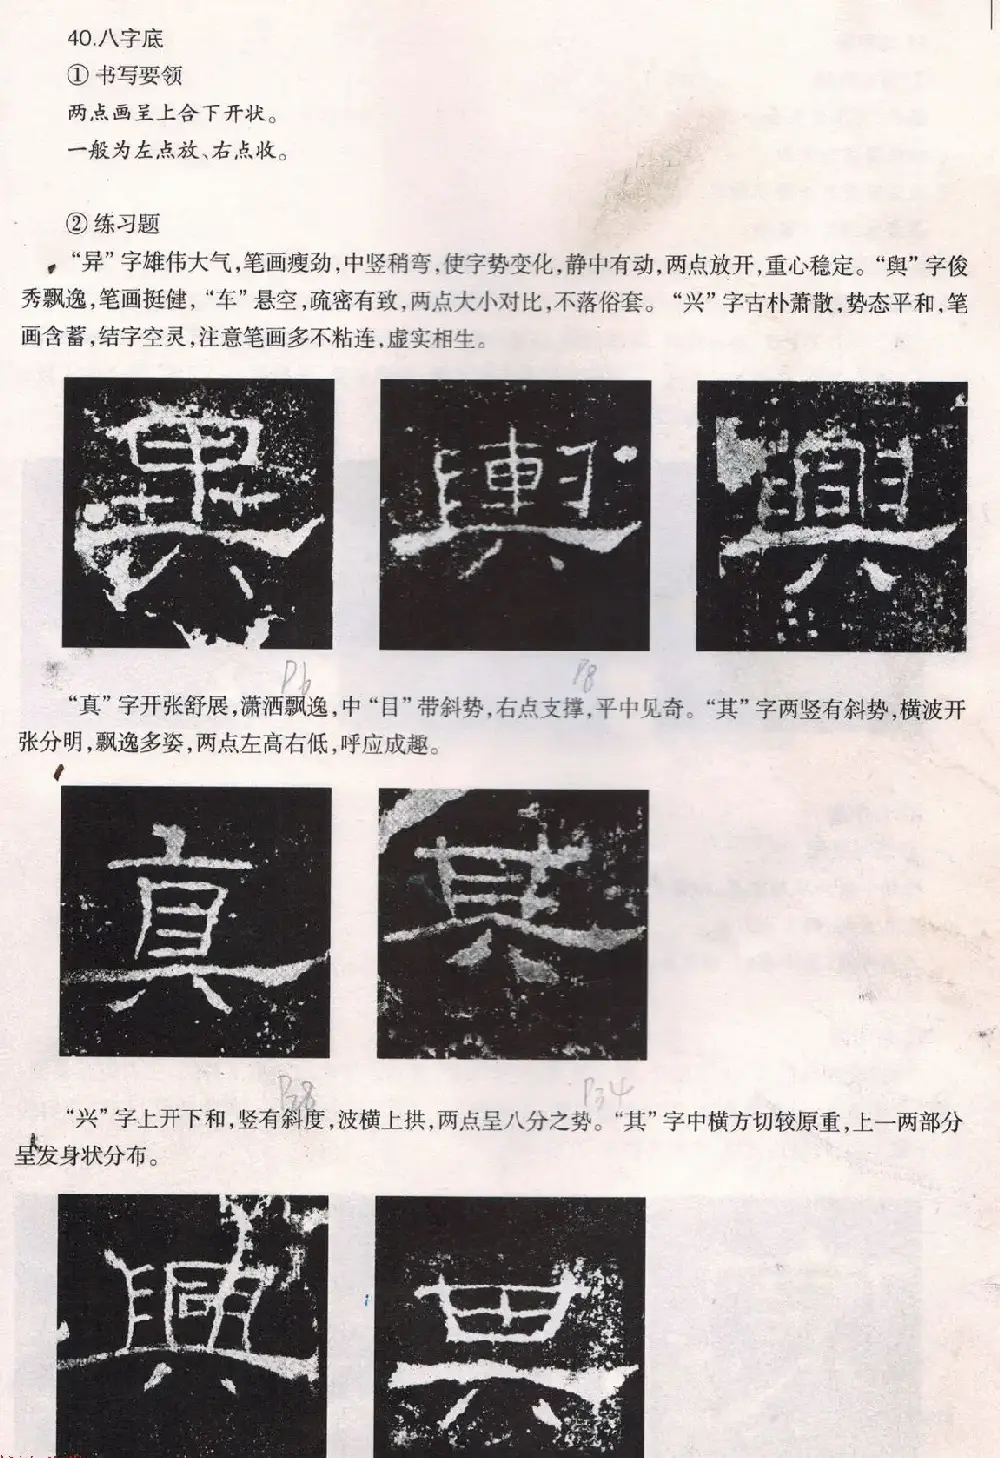 40.八字底
① 书写要领
两点画呈上合下开状。
一般为左点放、右点收。
② 练习题
“异”字雄伟大气,笔画瘦劲,中竖稍弯,使字势变化,静中有动,两点放开,重心稳定。“舆”字俊
秀飘逸,笔画挺健,“车”悬空,疏密有致,两点大小对比,不落俗套。“兴”字古朴萧散,势态平和,笔
画含蓄,结字空灵,注意笔画多不粘连,虚实相生。
異 輿 興
P6 P8
“真”字开张舒展,潇洒飘逸,中“目”带斜势,右点支撑,平中见奇。“其”字两竖有斜势,横波开
张分明,飘逸多姿,两点左高右低,呼应成趣。
真 其
P38 P34
“兴”字上开下和,竖有斜度,波横上拱,两点呈八分之势。“其”字中横方切较原重,上一两部分
呈发身状分布。
興 其